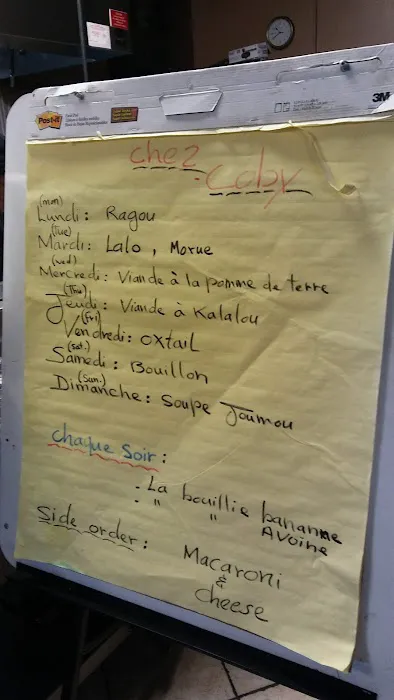 Post-it
3M
chez
Coby
(mon)
Lundi : Ragou
(Tue)
Mardi : Lalo , Morue
(wed)
Mercredi : Viande à la pomme de terre
(Thu)
Jeudi : Viande à Kalalou
(Fri)
Vendredi : oxtail
(sat.)
Samedi : Bouillon
(Sun.)
Dimanche : Soupe Joumou
chaque Soir :
- La bouillie banane
- " " Avoine
Side order :
Macaroni
&
cheese